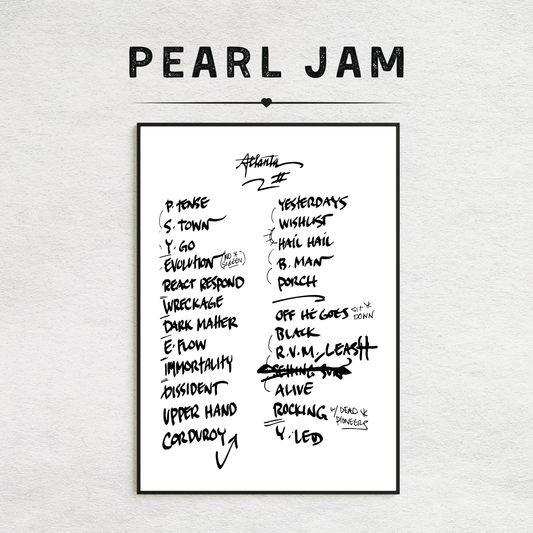 PEARL JAM
Atlanta
2#
P. TENSE
S. TOWN
Y. GO
EVOLUTION (NO * SCREEN)
REACT RESPOND
WRECKAGE
DARK MATTER
E. FLOW
IMMORTALITY
DISSIDENT
UPPER HAND
CORDUROY
YESTERDAYS
WISHLIST
HAIL HAIL
B. MAN
PORCH
OFF HE GOES SIT * DOWN
BLACK
R.V.M./LEASH
SETTING SUN
ALIVE
ROCKING W/ DEAD * PIONEERS
Y. LED